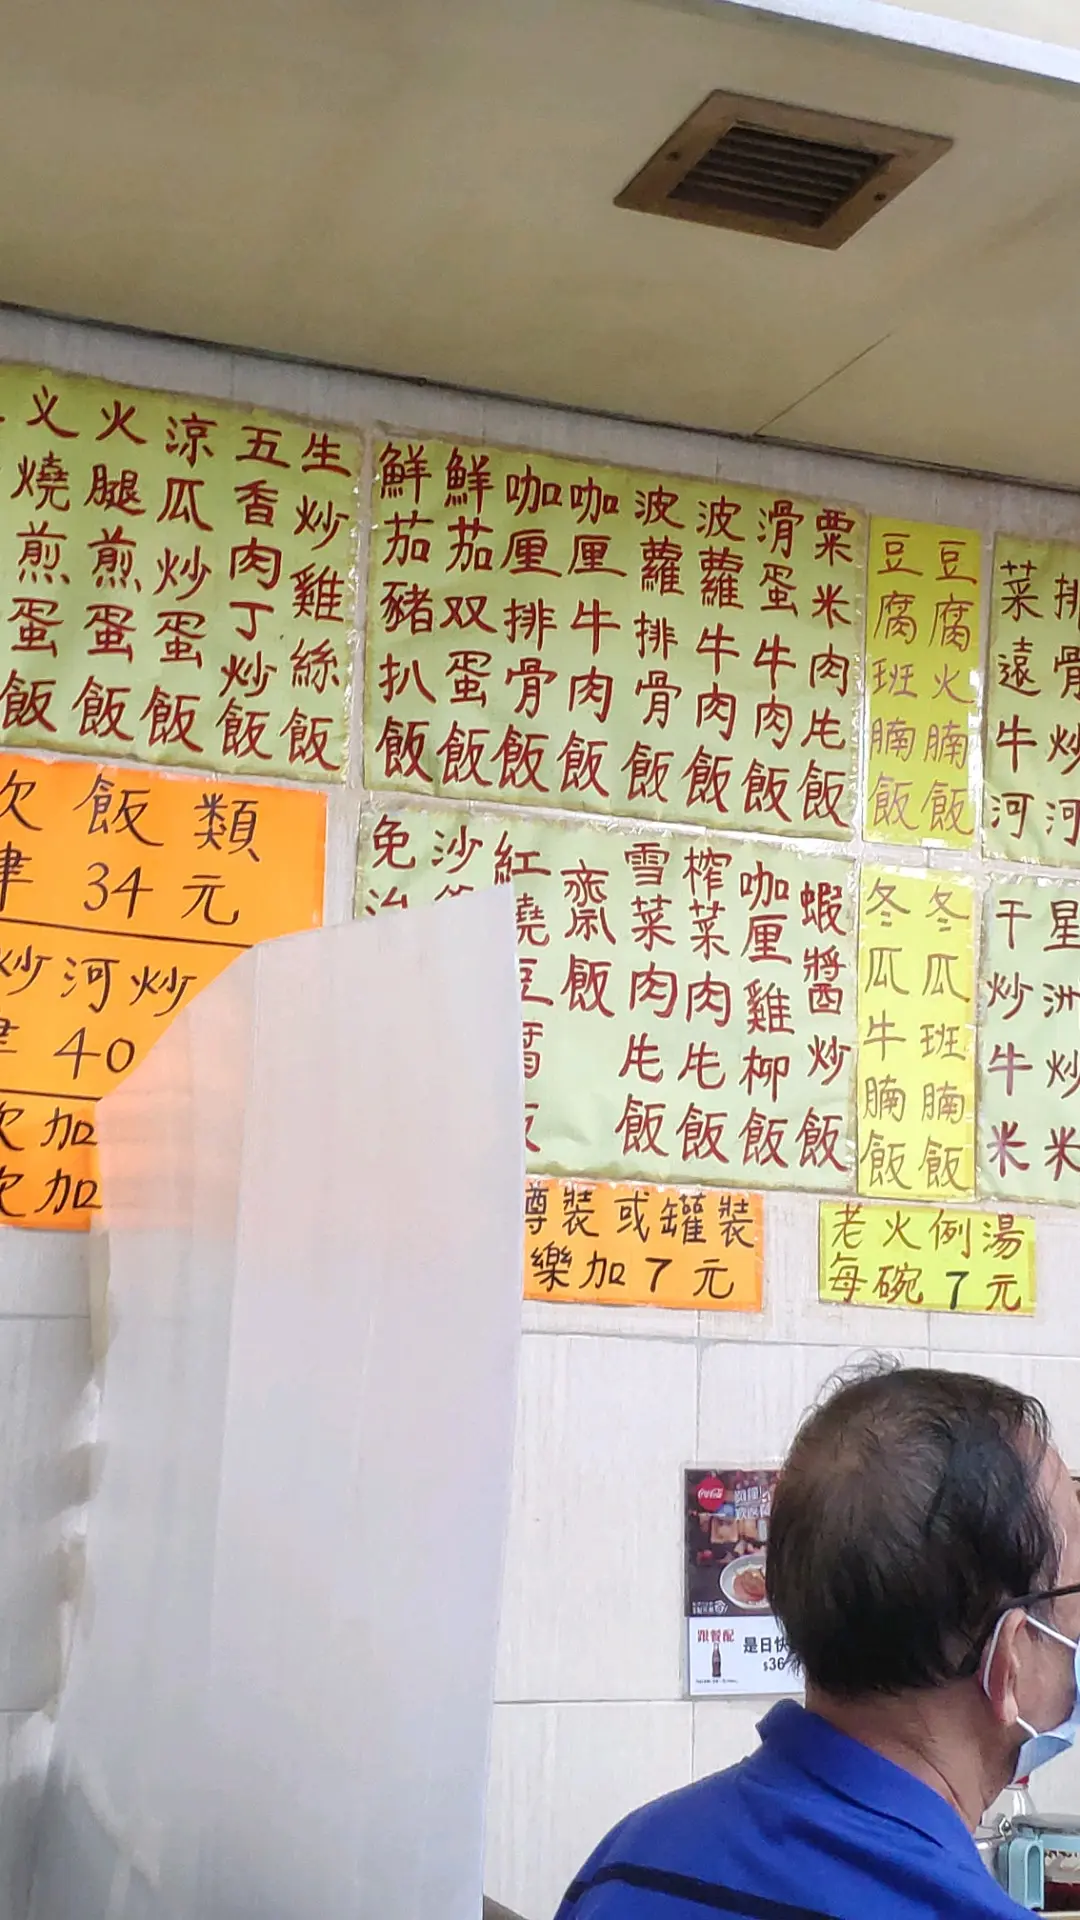 义燒煎蛋飯
火腿煎蛋飯
涼瓜炒蛋飯
五香肉丁炒飯
生炒雞絲飯
鮮茄豬扒飯
鮮茄双蛋飯
咖厘排骨飯
咖厘牛肉飯
波蘿排骨飯
波蘿牛肉飯
滑蛋牛肉飯
粟米肉片飯
豆腐班腩飯
豆腐火腩飯
菜遠牛河
排骨炒河
飲飯類
34元
炒河炒
40
加
加
免治
沙
紅燒豆腐飯
齋飯
雪菜肉片飯
榨菜肉片飯
咖厘雞柳飯
蝦醬炒飯
冬瓜牛腩飯
冬瓜班腩飯
干炒牛米
星洲炒米
樽裝或罐裝
樂加7元
老火例湯
每碗7元
Coca-Cola
跟餐配
是日快
$36